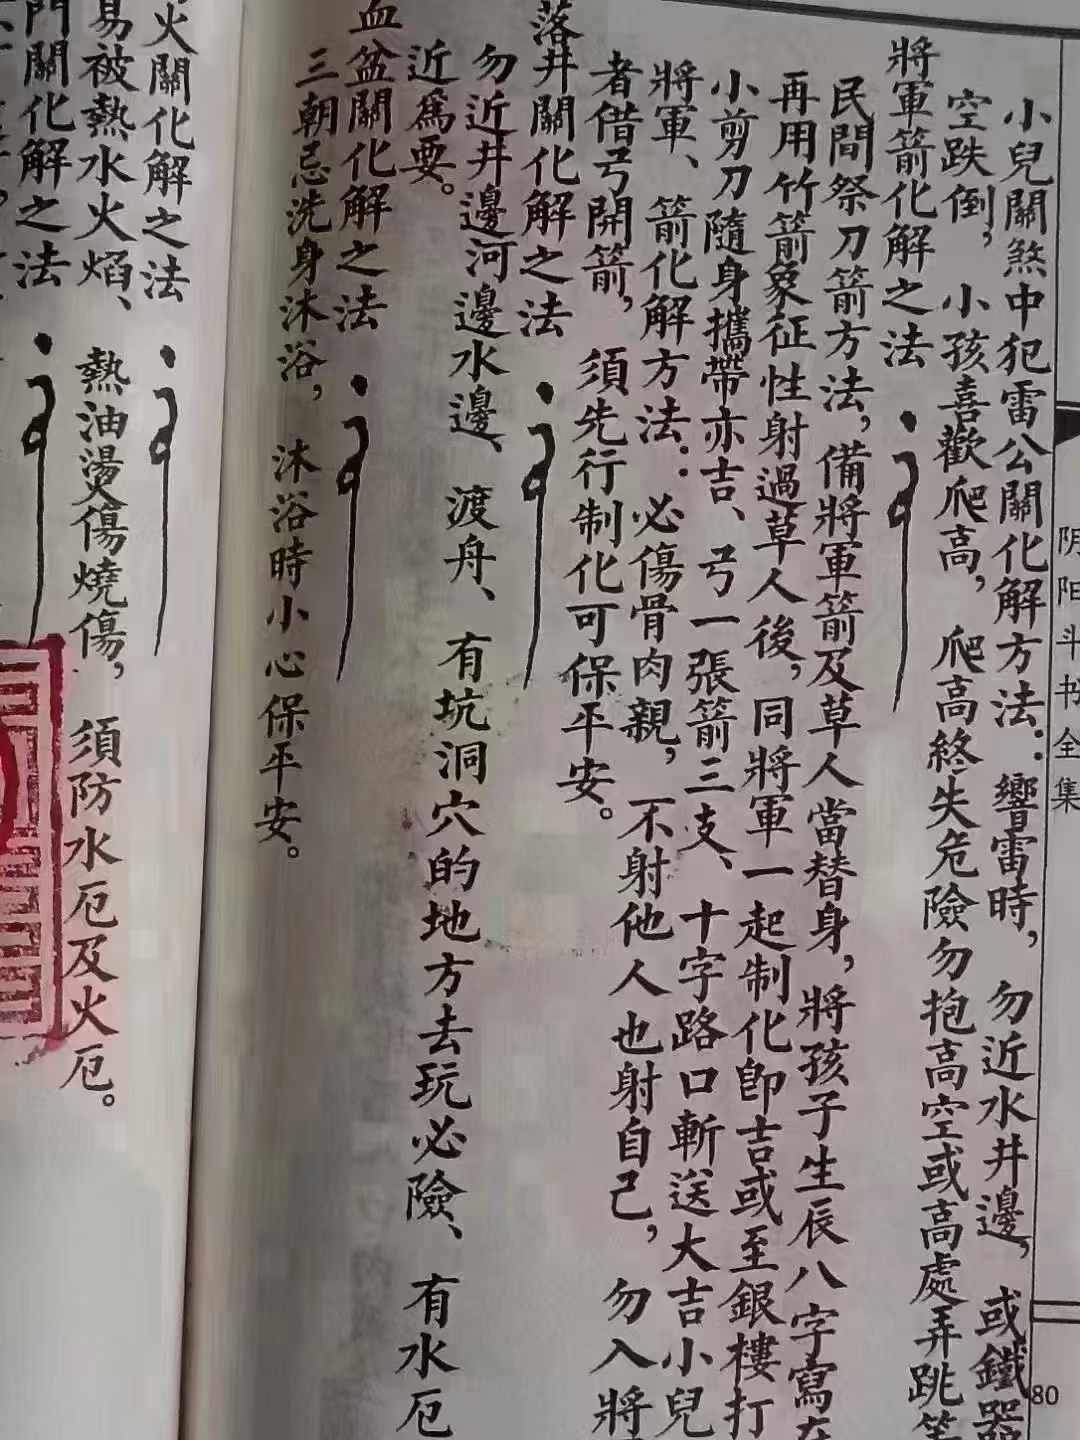 阴阳斗书全集
80
小兒關煞中犯雷公關化解方法：響雷時，勿近水井邊，或鐵器
空跌倒，小孩喜歡爬高，爬高終失危險勿抱高空或高處弄跳等
將軍箭化解之法
民間祭刀箭方法，備將軍箭及草人當替身，將孩子生辰八字寫在
再用竹箭象征性射過草人後，同將軍一起制化即吉或至銀樓打
小剪刀隨身攜帶亦吉、弓一張箭三支、十字路口斬送大吉小兒
將軍、箭化解方法：必傷骨肉親，不射他人也射自己，勿入將
者借弓開箭，須先行制化可保平安。
落井關化解之法
勿近井邊河邊水邊、渡舟、有坑洞穴的地方去玩必險、有水厄
近為要。
血盆關化解之法
三朝忌洗身沐浴，沐浴時小心保平安。
火關化解之法
易被熱水火焰、熱油燙傷燒傷，須防水厄及火厄。
門關化解之法